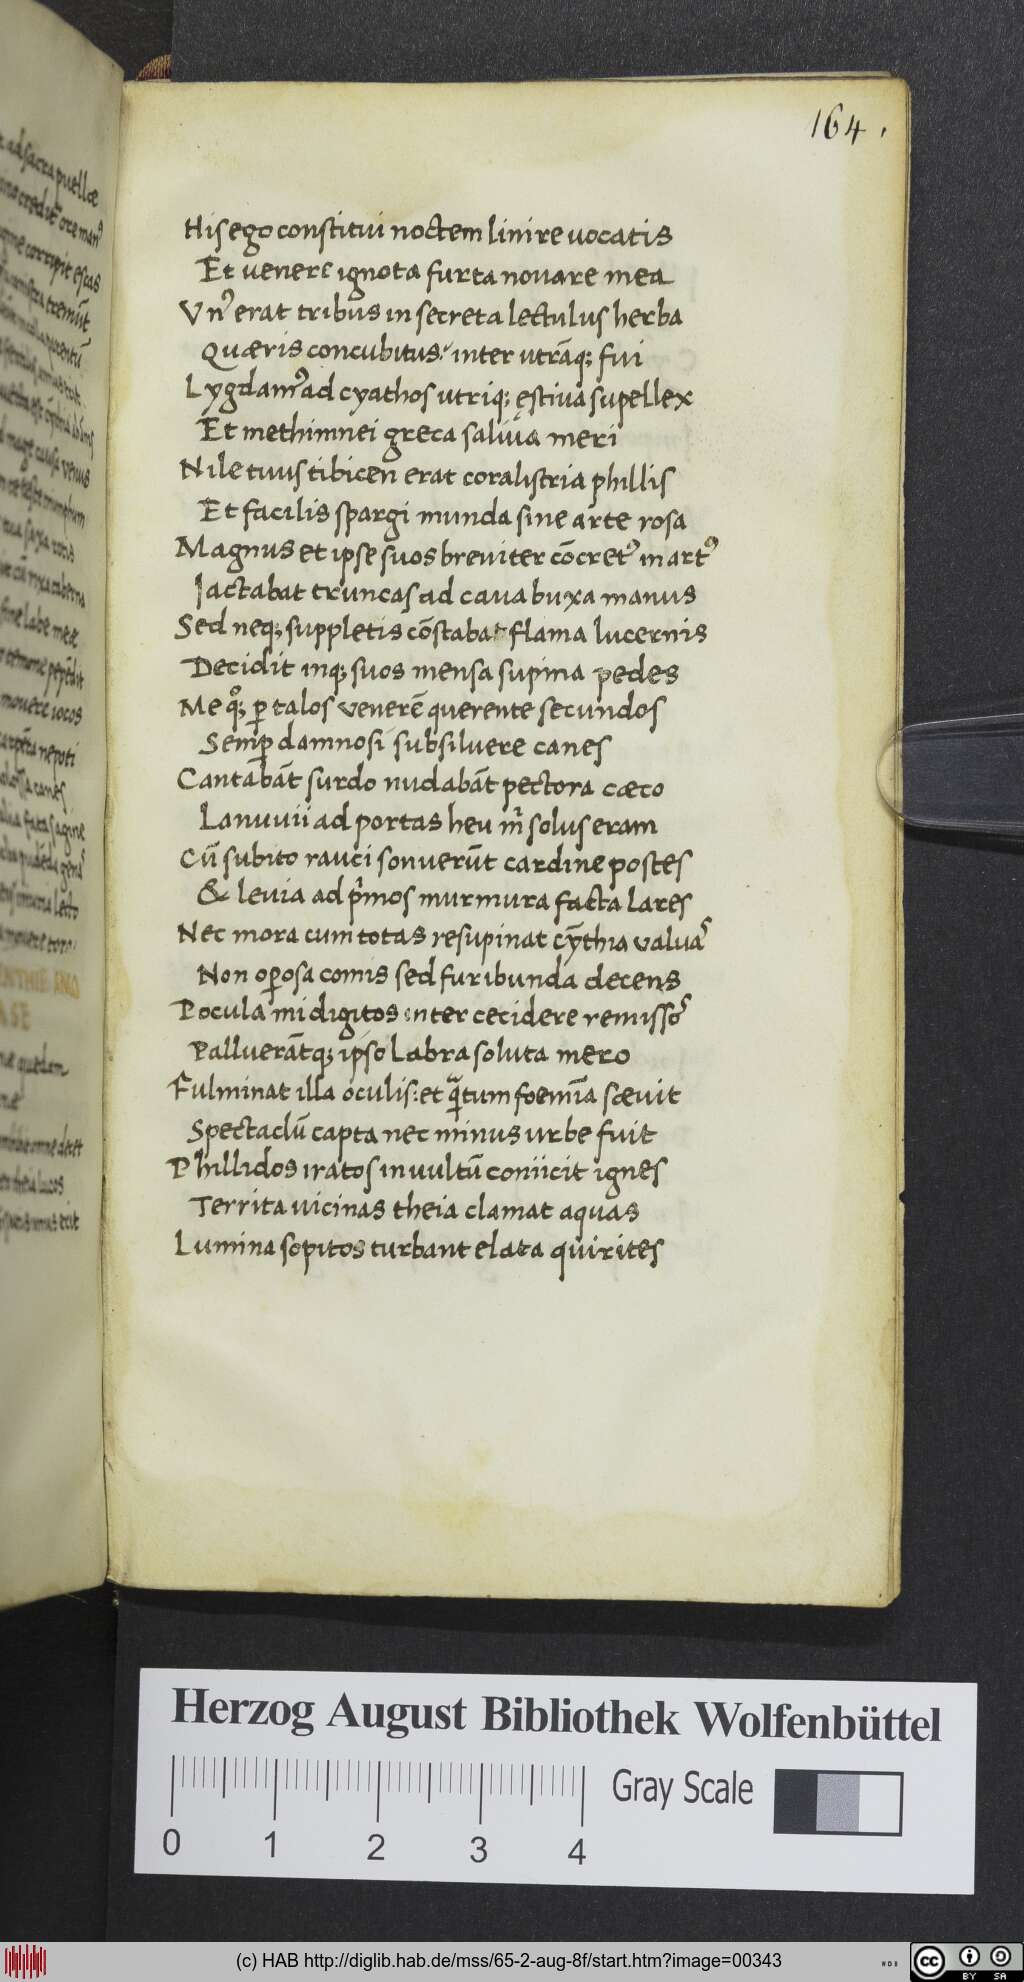 164.
His ego constitui noctem linire uocatis
Et venere ignota furta nouare mea
Vnꝰ erat tribus in secreta lectulus herba
Quæris concubitus? inter utrāq; fui
Lygdamꝰ ad cyathos utriq; ęstiua supellex
Et methimnei greca saliua meri
Nile tuus tibicen erat coralistria phillis
Et facilis spargi munda sine arte rosa
Magnus et ipse suos breviter cōcretꝰ in artꝰ
Iactabat truncas ad caua buxa manus
Sed neq; suppletis cōstabat flama lucernis
Decidit inq; suos mensa supina pedes
Me qͦ; ꝑ talos venerē querente secundos
Semꝑ damnosi subsiluere canes
Cantabāt surdo nudabāt pectora cæco
Lanuvii ad portas heu mͥ solus eram
Cū subito rauci sonuerūt cardine postes
& levia ad pͥmos murmura facta lares
Nec mora cum totas resupinat cȳthia valuaˢ
Non oꝑosa comis sed furibunda decens
Pocula mi digitos inter cecidere remissoˢ
Palluerātq; ipso labra soluta mero
Fulminat illa oculis: et qᷓtum foemīa sæuit
Spectaclū capta nec minus urbe fuit
Phillidos iratos in uultū coniicit ignes
Territa uicinas theia clamat aquas
Lumina sopitos turbant elata quirites
Herzog August Bibliothek Wolfenbüttel
Gray Scale
0 1 2 3 4
(c) HAB http://diglib.hab.de/mss/65-2-aug-8f/start.htm?image=00343
cc BY SA